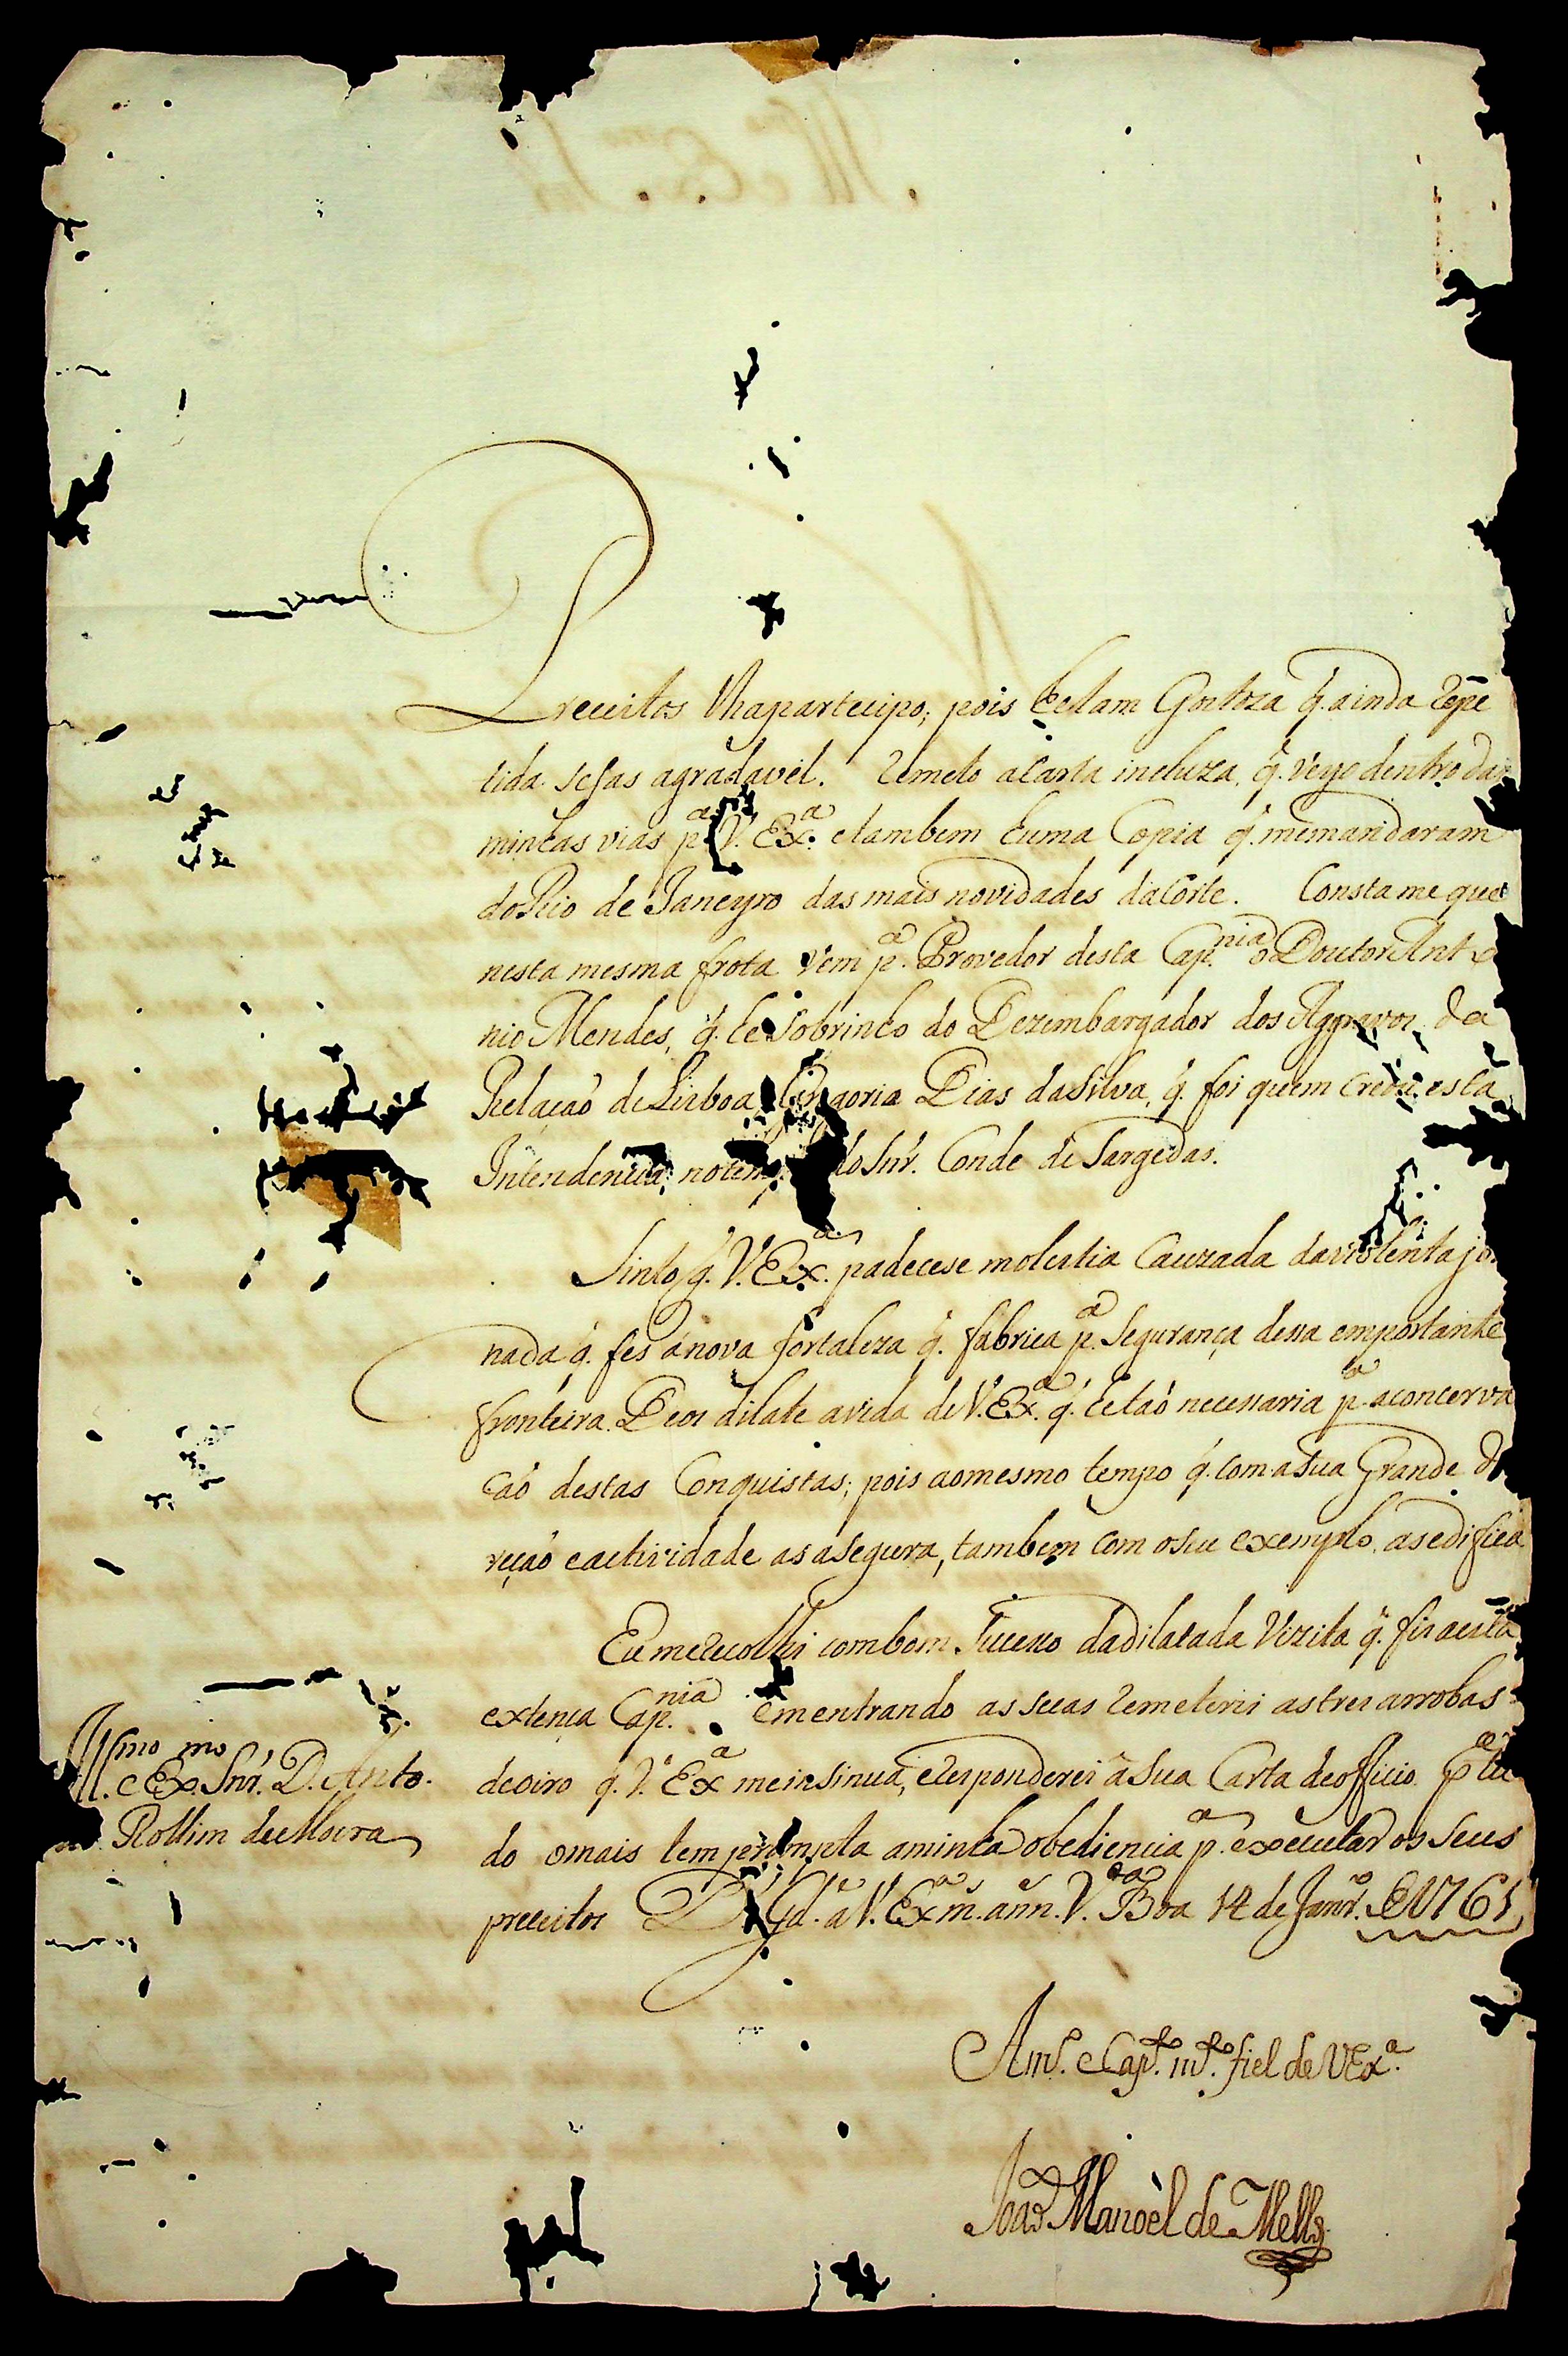 Preceitos lhapartecipo; pois he tam Gostoza q. ainda repe
tida sefas agradavel. Remeto acarta incluza, q. veyo dentro das
minhas vias p.ª V. Ex.ª etambem huma Copia q. memandaram
doRio de Janeyro das mais novidades daCorte. Consta me que
nesta mesma frota vem p.ª Provedor desta Cap.nia o Doutor Anto
nio Mendes, q. he Sobrinho do Dezembargador dos Aggravos da
Relaçaõ de Lisboa Gregorio Dias daSilva, q. foi quem creou esta
Intendencia, notempo doSnr. Conde de Sargedas.
Sinto q. V. Ex.ª padecese molestia Cauzada daviolenta jor
nada q. fes ánova fortaleza q. fabrica p.ª Segurança dessa emportante
fronteira. Deos dilate avida de V. Ex.ª q. he taõ necessaria p.ª aconcerva
çaõ destas Conquistas; pois aomesmo tempo q. com aSua Grande
reçaõ eactividade as asegura, tambem com oseu exemplo, asedifica
Eu merecolhi combom Sucesso dadilatada Vizita q. fis aesta
extença Cap.nia Ementrando as secas remeterei astres arrobas
deoiro q. V. Ex.ª meinsinua, eresponderei áSua Carta deofficio. P.ª tu
do omais tem prompta aminha obediencia p.ª executar os Seus
preceitos D.s G.de a V. Ex.ª m.s ann.s V.ª Boa 14 de Janr.º de 1761
Ill.mo e Ex.mo Snr. D. Anto.
Rollim deMoura
Am.º e Cap.to m.to fiel de V Ex.ª
Joaõ Manoèl de Mello